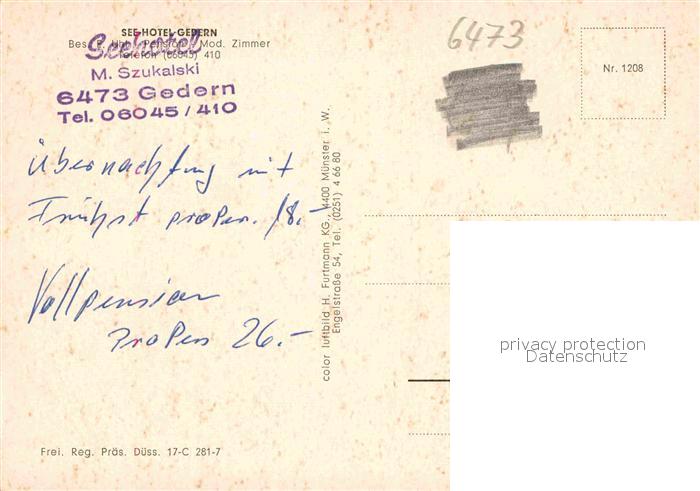 SEE-HOTEL-GEDERN
Bes. Pension Mod. Zimmer
Telefon (06045) 410
Seehotel
M. Szukalski
6473 Gedern
Tel. 06045/410
Übernachtung mit
Frühst proPer. 18.-
Vollpension
ProPers 26.-
Frei. Reg. Präs. Düss. 17-C 281-7
color luftbild H. Furtmann KG., 4400 Münster i. W.
Engelstraße 54, Tel. (0251) 4 66 80
6473
Nr. 1208
privacy protection
Datenschutz